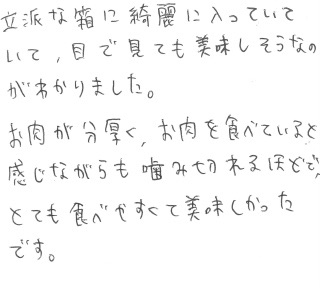 立派な箱に綺麗に入っていて
いて、目で見ても美味しそうなの
がわかりました。
お肉が分厚く、お肉を食べていると
感じながらも噛み切れるほどで、
とても食べやすくて美味しかった
です。